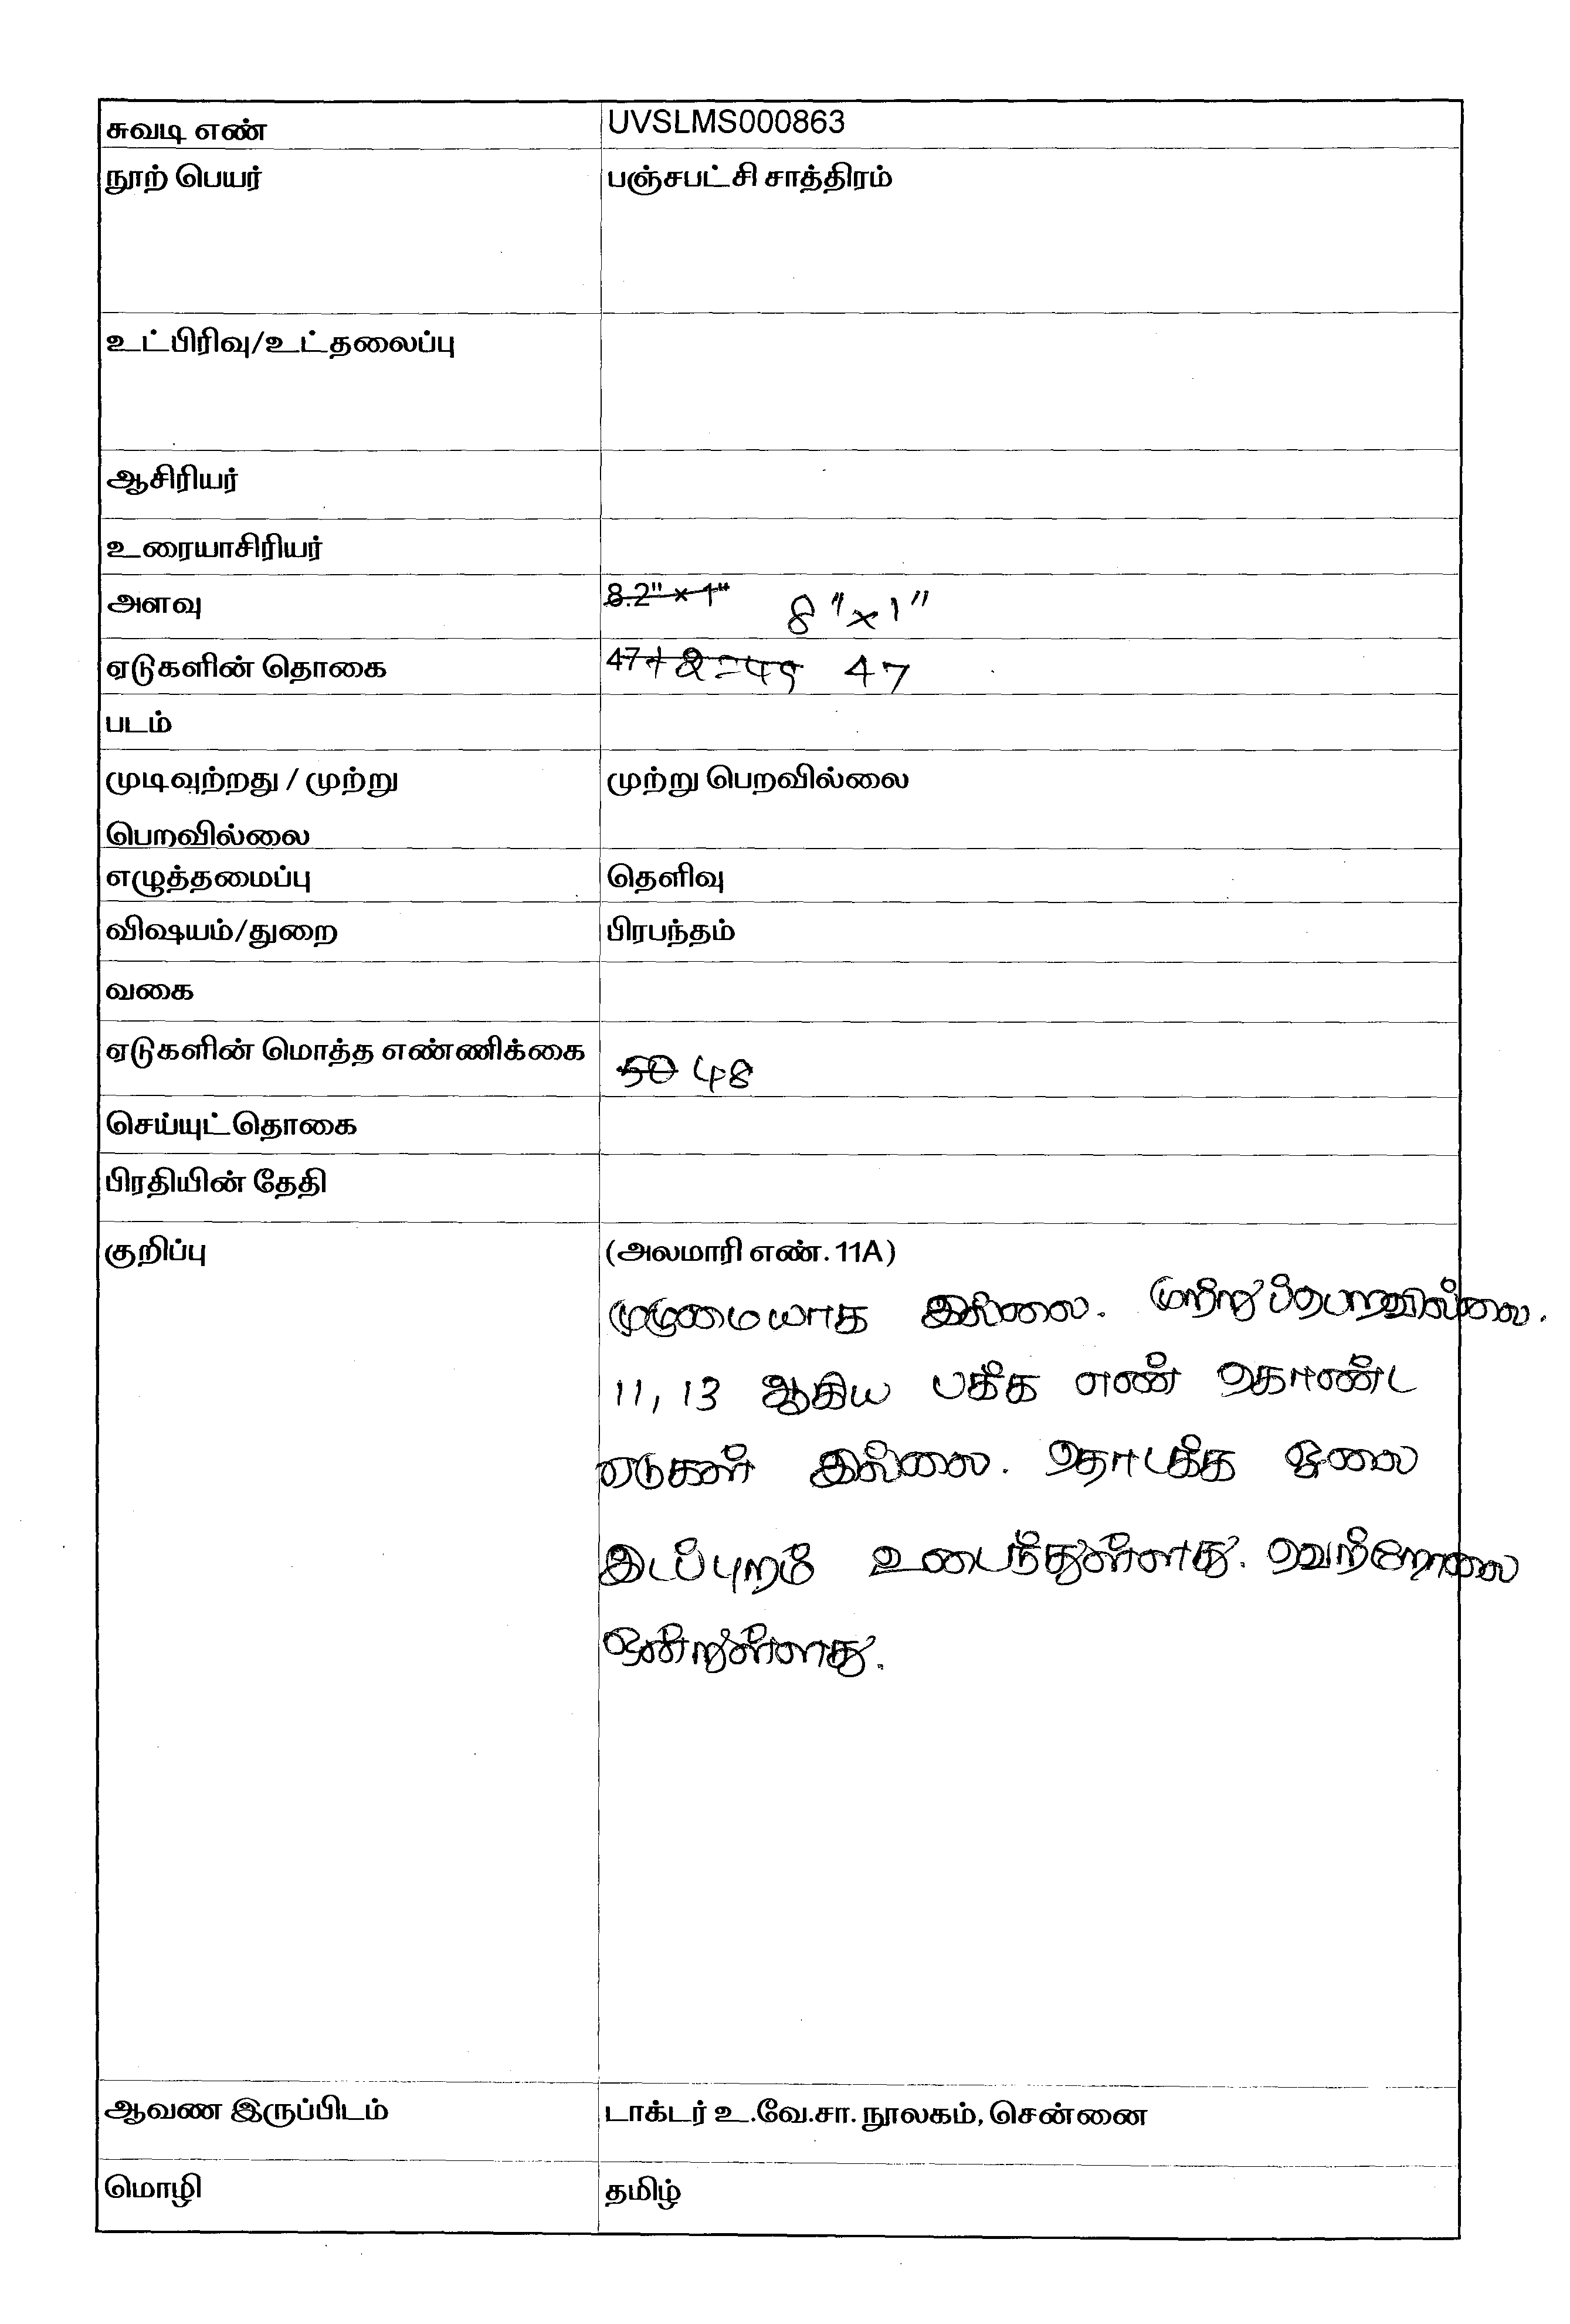 சுவடி எண் UVSLMS000863
நூற் பெயர் பஞ்சபட்சி சாத்திரம்
உட்பிரிவு/உட்தலைப்பு
ஆசிரியர்
உரையாசிரியர்
அளவு 8.2" x 1" 8" x 1"
ஏடுகளின் தொகை 47+2=49 47
படம்
முடிவுற்றது / முற்று முற்று பெறவில்லை
பெறவில்லை
எழுத்தமைப்பு தெளிவு
விஷயம்/துறை பிரபந்தம்
வகை
ஏடுகளின் மொத்த எண்ணிக்கை 50 48
செய்யுட்தொகை
பிரதியின் தேதி
குறிப்பு (அலமாரி எண். 11A)
முழுமையாக இல்லை. முற்றுப்பெறவில்லை.
11, 13 ஆகிய பக்க எண் கொண்ட
ஏடுகள் இல்லை. தொடக்க ஓலை
இடப்புறம் உடைந்துள்ளது. வெற்றோலை
ஒன்றுள்ளது.
ஆவண இருப்பிடம் டாக்டர் உ.வே.சா. நூலகம், சென்னை
மொழி தமிழ்